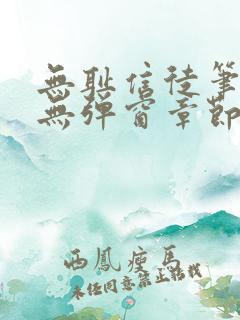 無耻信徒筆
無彈窗章節
西鳳瘦馬
未經同意禁止轉載